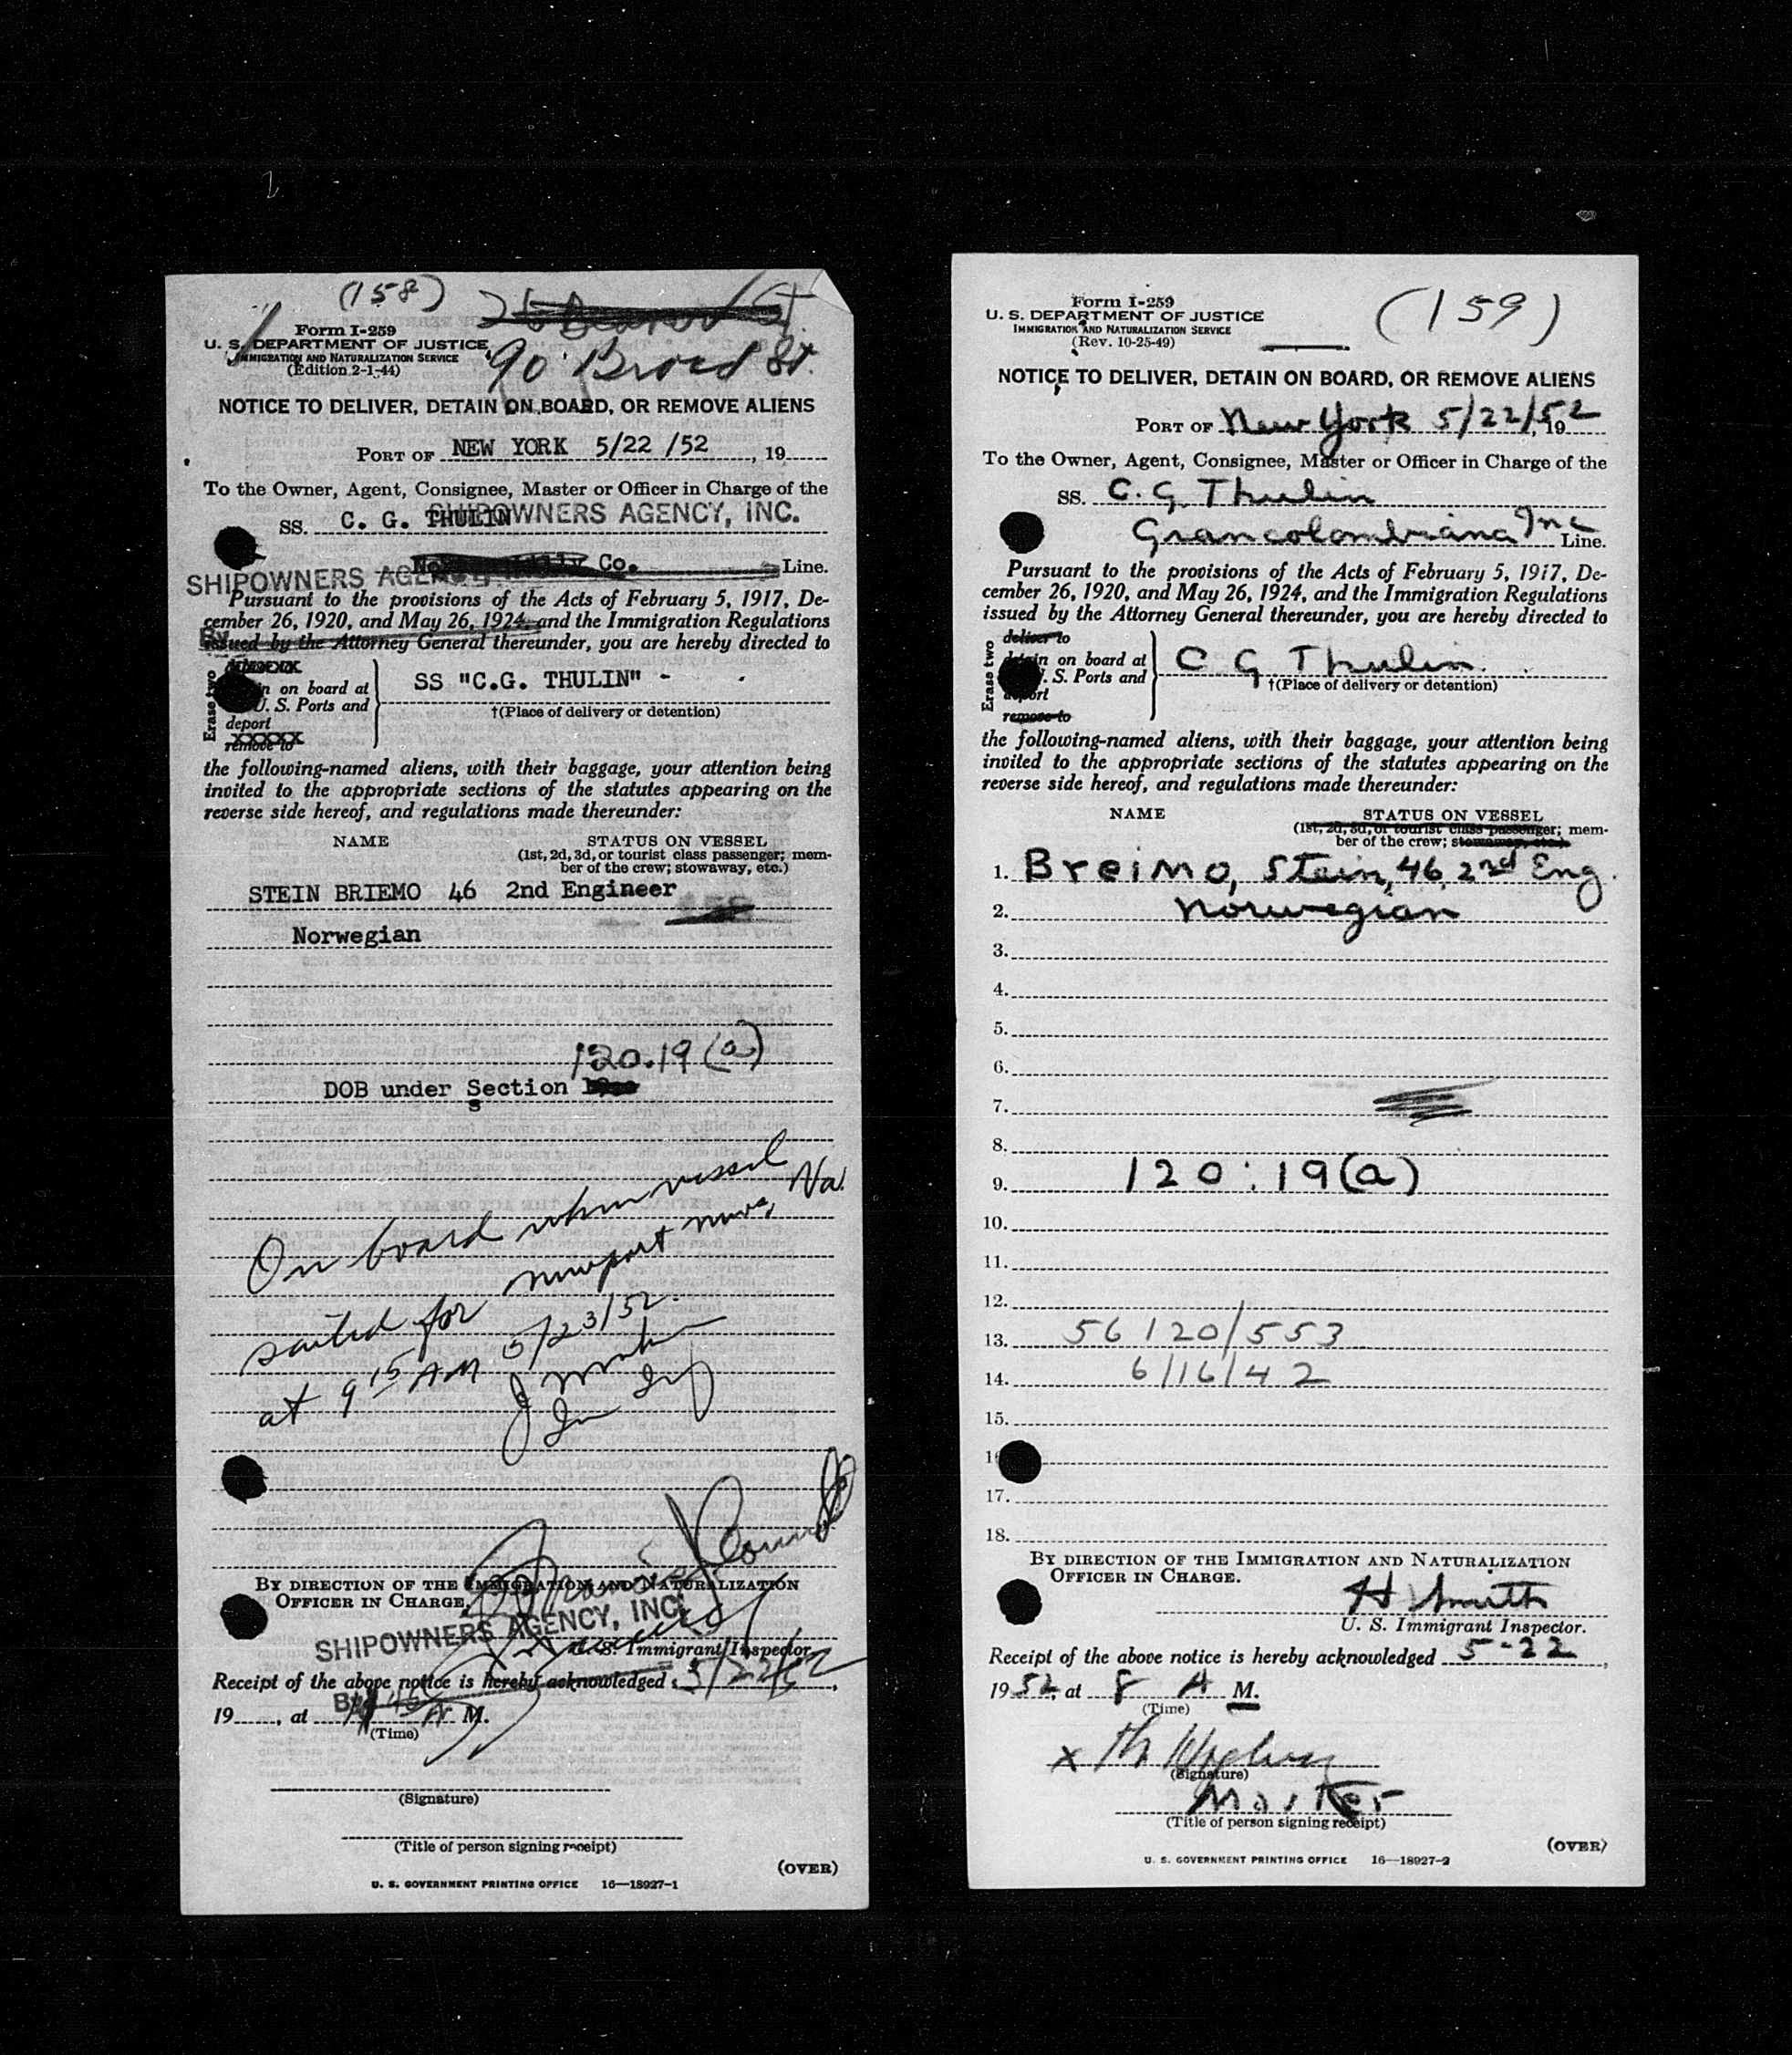 (158)
90 Broad St.
Form I-259
U. S. DEPARTMENT OF JUSTICE
IMMIGRATION AND NATURALIZATION SERVICE
(Edition 2-1-44)
NOTICE TO DELIVER, DETAIN ON BOARD, OR REMOVE ALIENS
PORT OF NEW YORK 5/22 /52, 19
To the Owner, Agent, Consignee, Master or Officer in Charge of the
SS. C. G. THULIN SHIPOWNERS AGENCY, INC.
Co. Line.
SHIPOWNERS AGENCY
Pursuant to the provisions of the Acts of February 5, 1917, De-
cember 26, 1920, and May 26, 1924, and the Immigration Regulations
By
issued by the Attorney General thereunder, you are hereby directed to
Erase two
on board at
U. S. Ports and
deport
remove to
SS "C.G. THULIN" -
†(Place of delivery or detention)
the following-named aliens, with their baggage, your attention being
invited to the appropriate sections of the statutes appearing on the
reverse side hereof, and regulations made thereunder:
NAME STATUS ON VESSEL
(1st, 2d, 3d, or tourist class passenger; mem-
ber of the crew; stowaway, etc.)
STEIN BRIEMO 46 2nd Engineer
Norwegian
120.19 (a)
DOB under Section
On board when vessel
sailed for Newport News, Va.
at 9 15 AM 5/23/52.
BY DIRECTION OF THE IMMIGRATION AND NATURALIZATION
OFFICER IN CHARGE.
SHIPOWNERS AGENCY, INC.
U. S. Immigrant Inspector.
Receipt of the above notice is hereby acknowledged 5/22/52,
19, at A M.
By
(Time)
(Signature)
(Title of person signing receipt)
(OVER)
U. S. GOVERNMENT PRINTING OFFICE 16—18927-1
Form I-259
U. S. DEPARTMENT OF JUSTICE
IMMIGRATION AND NATURALIZATION SERVICE
(Rev. 10-25-49)
(159)
NOTICE TO DELIVER, DETAIN ON BOARD, OR REMOVE ALIENS
PORT OF New York 5/22/52, 19
To the Owner, Agent, Consignee, Master or Officer in Charge of the
SS. C. G. Thulin
Grancolombiana Inc Line.
Pursuant to the provisions of the Acts of February 5, 1917, De-
cember 26, 1920, and May 26, 1924, and the Immigration Regulations
issued by the Attorney General thereunder, you are hereby directed to
Erase two
deliver to
detain on board at
U. S. Ports and
deport
remove to
C G Thulin
†(Place of delivery or detention)
the following-named aliens, with their baggage, your attention being
invited to the appropriate sections of the statutes appearing on the
reverse side hereof, and regulations made thereunder:
NAME STATUS ON VESSEL
(1st, 2d, 3d, or tourist class passenger; mem-
ber of the crew; stowaway, etc.)
1. Breimo, Stein, 46, 2nd Eng.
2. Norwegian
3.
4.
5.
6.
7.
8.
9. 120:19(a)
10.
11.
12.
13. 56120/553
14. 6/16/42
15.
16
17.
18.
BY DIRECTION OF THE IMMIGRATION AND NATURALIZATION
OFFICER IN CHARGE.
H Smith
U. S. Immigrant Inspector.
Receipt of the above notice is hereby acknowledged 5-22,
1952, at 8 A M.
(Time)
x
(Signature)
Master
(Title of person signing receipt)
(OVER)
U. S. GOVERNMENT PRINTING OFFICE 16—18927-2